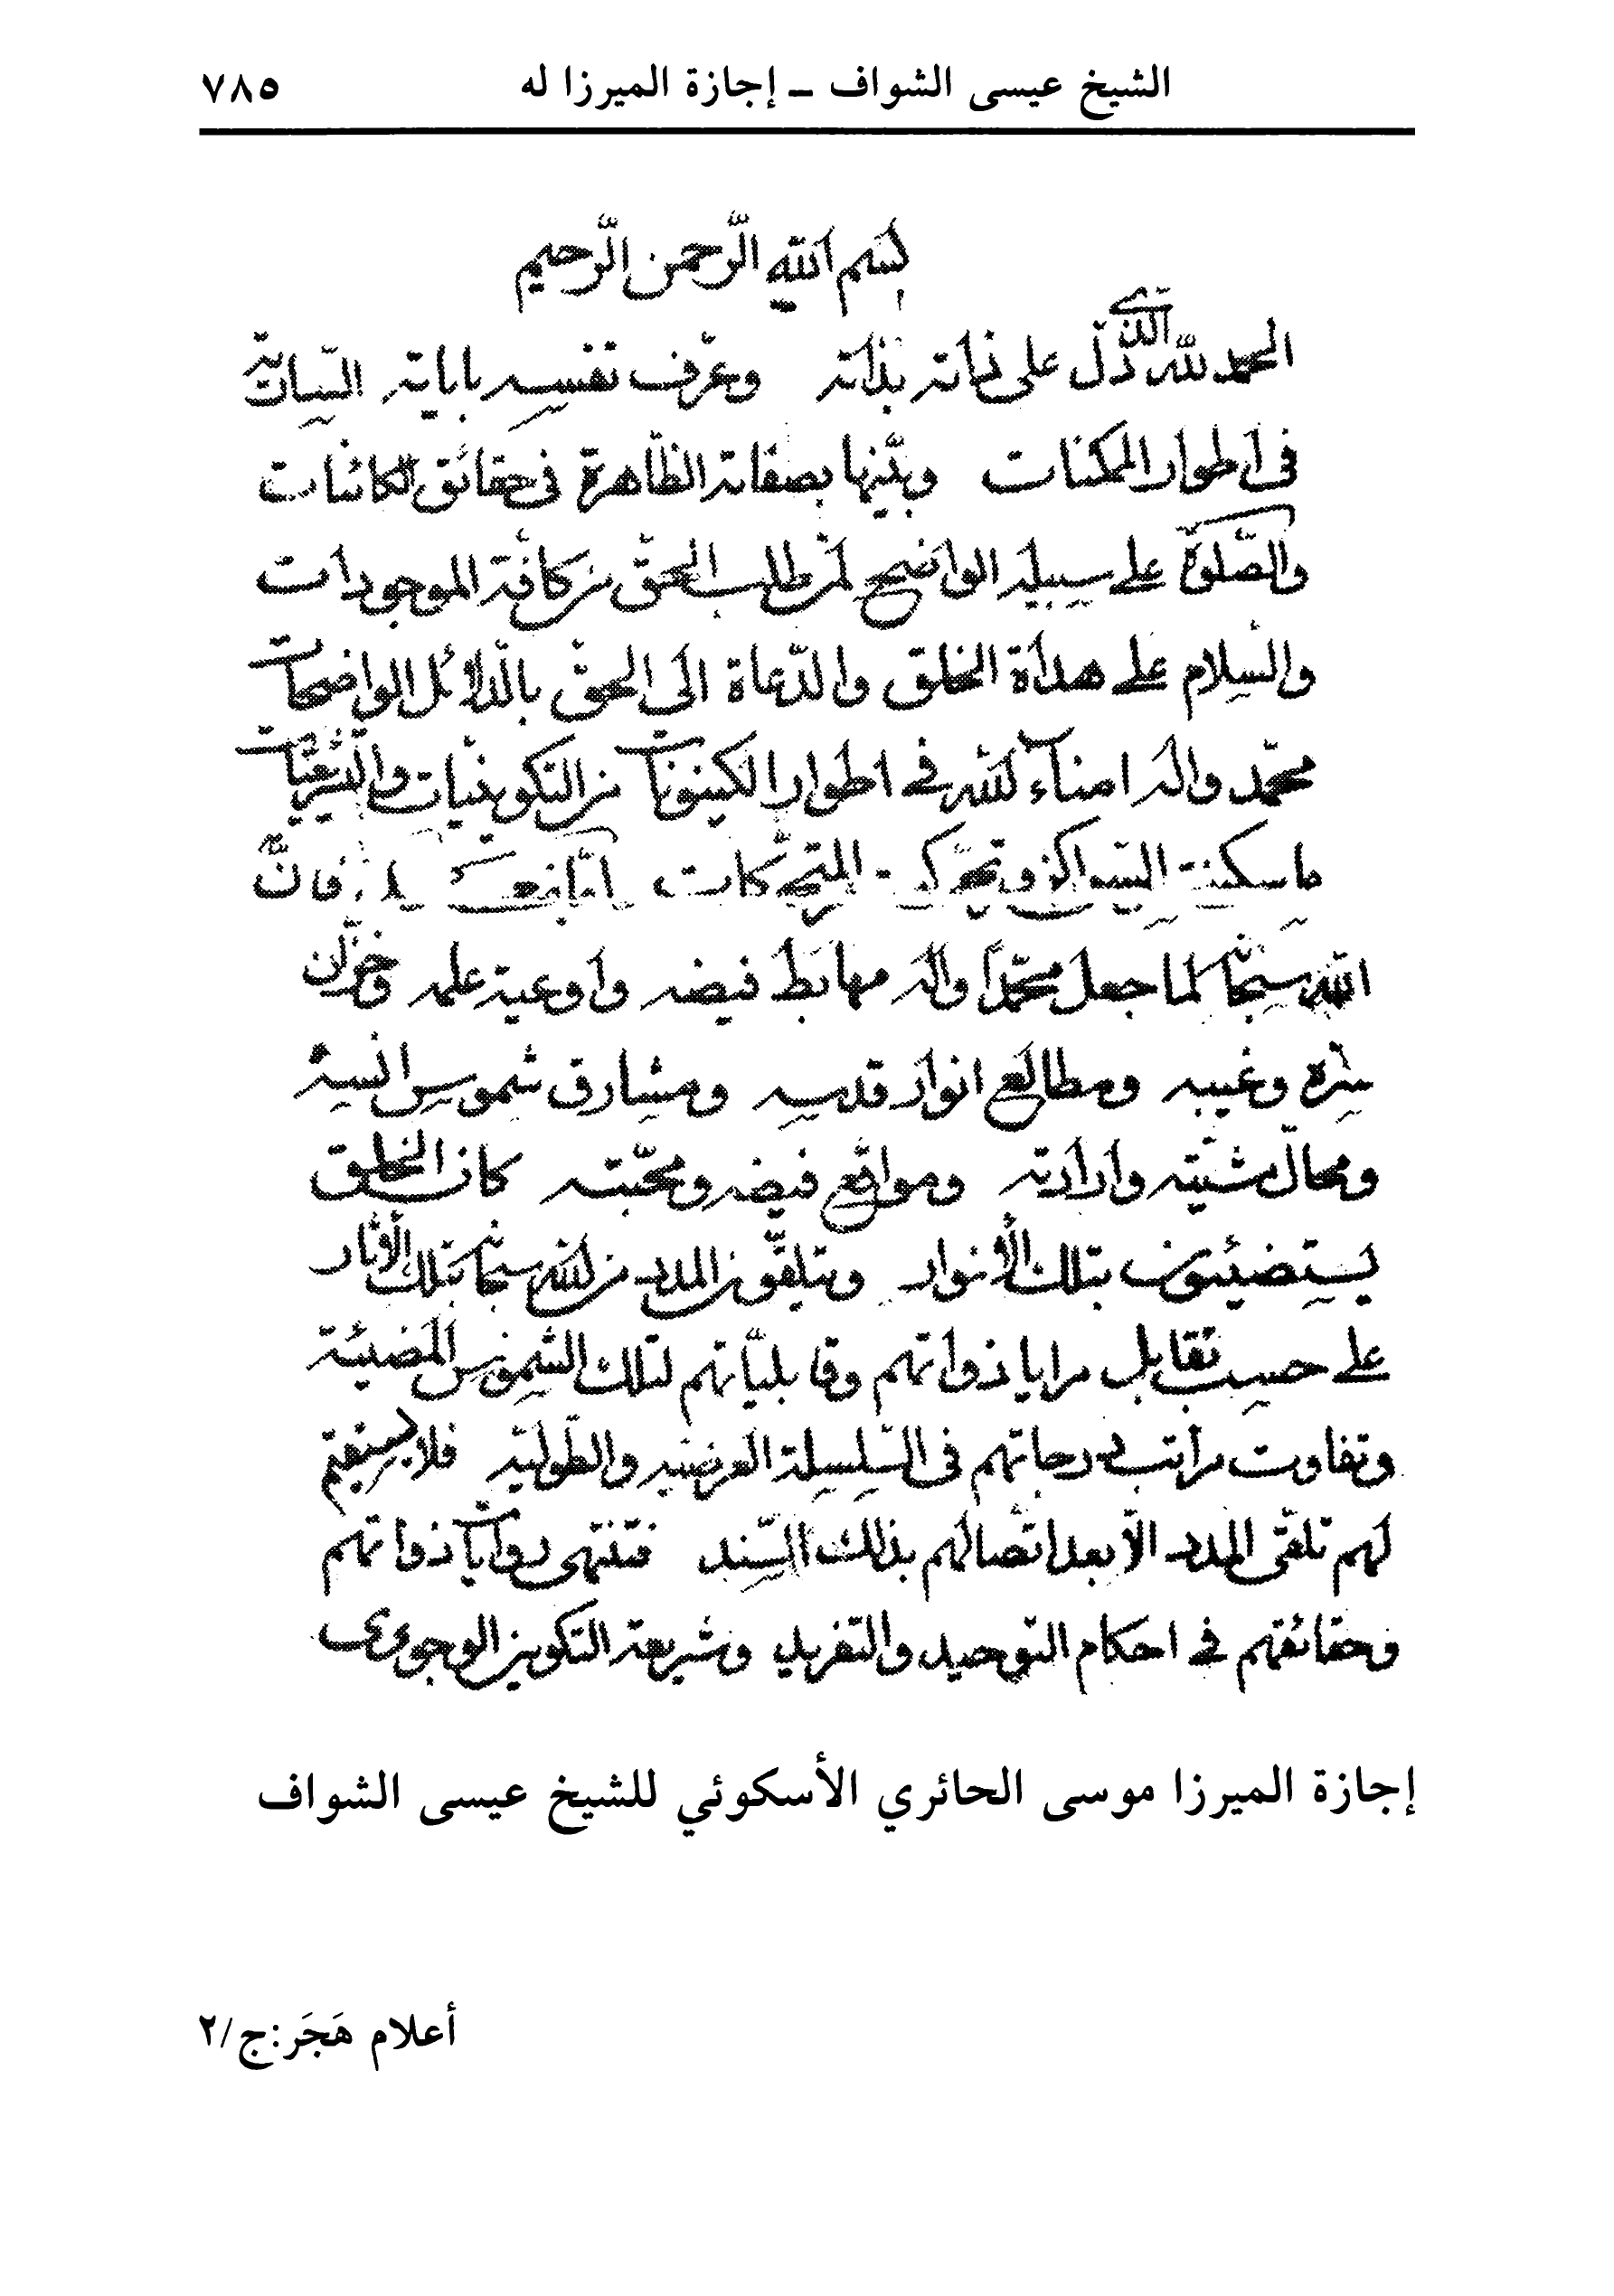 الشيخ عيسى الشواف ــ إجازة الميرزا له ٧٨٥
بسم الله الرّحمن الرّحيم
الحمد لله الذي دلّ على ذاته بذاته وعرّف نفسه باياته
فى اطوار الممكنات وبيّنها بصفاته الظّاهرة فى حقائق الكائنات
والصّلوة على سبيله الواضح لمن طلب الحق من كافّة الموجودات
والسلام على هداة الخلق والدّعاة الى الحق بالدّلائل الواضحات
محمّد واله امناء الله فى اطوار من التكوينيات والتشريعيات
ما سكنت السّواكن وتحركت المتحركات فانّ
الله سبحانه لما جعل محمّداً واله مهابط فيضه واوعية علمه وخزّان
سرّه وغيبه ومطالع انوار قدسه ومشارق شموس انسه
ومحالّ مشيّته وارادته ومواقع فيضه ومحبّته كان الخلق
يستضيئون بتلك الأنوار ويتلقّون المدد من الله سبحانه بتلك الآثار
على حسب تقابل مرايا ذواتهم وقابليّاتهم لتلك الشموس المضيئة
وتفاوت مراتب درجاتهم فى السّلسلة العرضيه والطّوليّه فلا
لهم تلقّى المدد الّا بعد اتّصالهم بذلك السّند فتنتهى ذواتهم
وحقائقهم فى احكام التوحيد والتفريد وشريعة التكوين الوجودى
إجازة الميرزا موسى الحائري الأسكوئي للشيخ عيسى الشواف
أعلام هَجَر:ج/٢